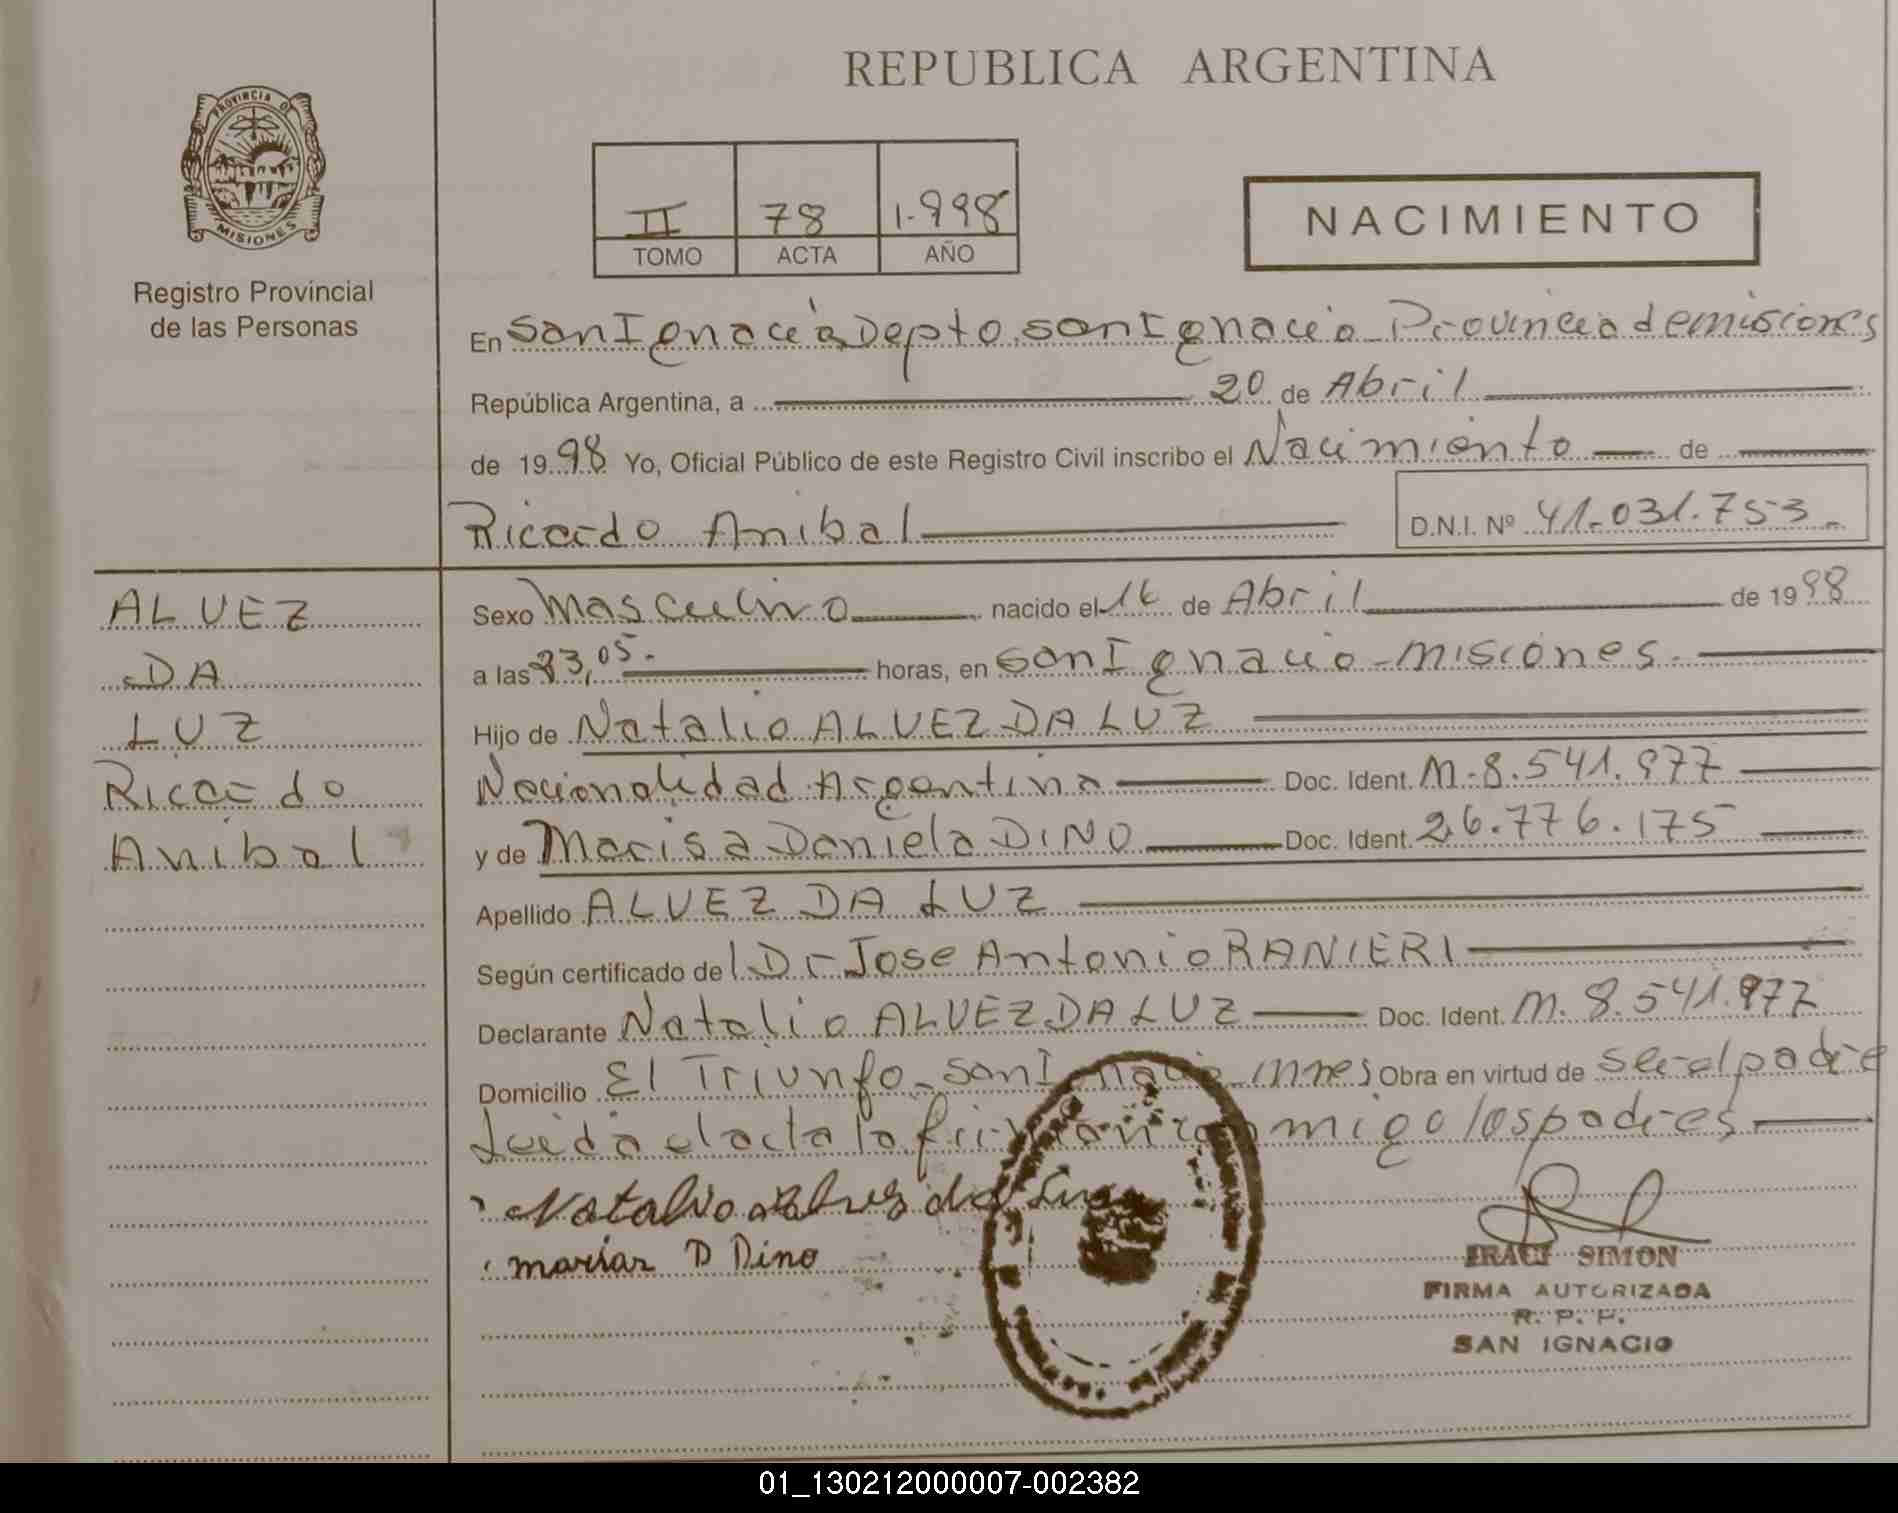 REPUBLICA ARGENTINA
PROVINCIA D
MISIONES
Registro Provincial
de las Personas
II 78 1.998
TOMO ACTA AÑO
NACIMIENTO
En San Ignacio Depto. San Ignacio Provincia de misiones
República Argentina, a 20 de Abril
de 1998 Yo, Oficial Público de este Registro Civil inscribo el Nacimiento de
Ricardo Anibal D.N.I. Nº 41.031.753
ALVEZ
DA
LUZ
Ricardo
Anibal
Sexo Masculino nacido el 16 de Abril de 1998
a las 23,05 horas, en San Ignacio - misiones.
Hijo de Natalio ALVEZ DA LUZ
Nacionalidad Argentina Doc. Ident. M. 8.541.977
y de Marisa Daniela DINO Doc. Ident. 26.776.175
Apellido ALVEZ DA LUZ
Según certificado del Dr Jose Antonio RANIERI
Declarante Natalio ALVEZ DA LUZ Doc. Ident. M. 8.541.977
Domicilio El Triunfo - San Ignacio - mnes Obra en virtud de ser el padre
Leida el acta la firman conmigo los padres
Natalio Alves da Luz
D Dino
IRACI SIMON
FIRMA AUTORIZADA
R. P. P.
SAN IGNACIO
01_130212000007-002382